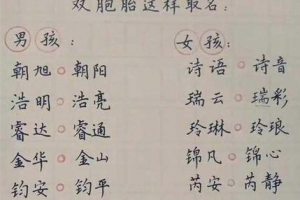 双胞胎这样取名：
男孩： 女孩：
朝旭 朝阳 诗语 诗音
浩明 浩亮 瑞云 瑞彩
睿达 睿通 玲琳 玲琅
金华 金山 锦凡 锦心
钧安 钧平 芮安 芮静